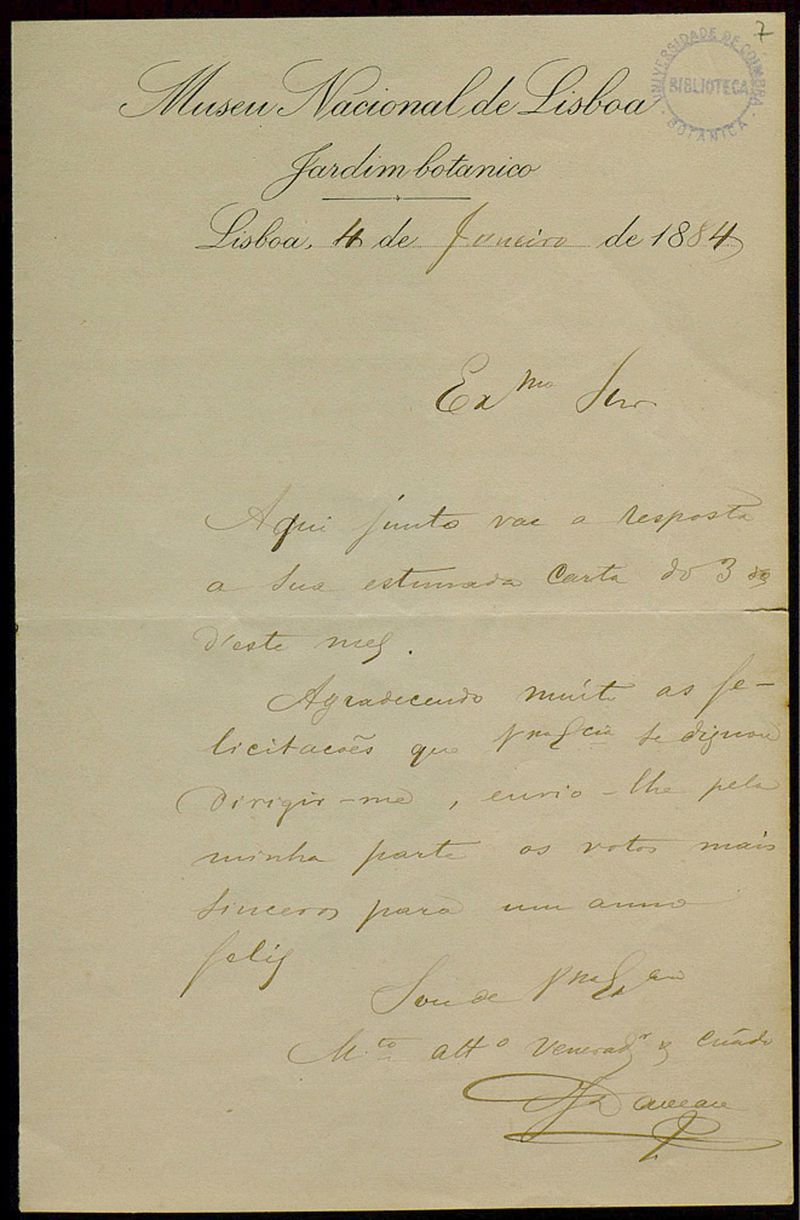 7
UNIVERSIDADE DE COIMBRA
BIBLIOTECA
BOTANICA
Museu Nacional de Lisboa
Jardim botanico
Lisboa, 4 de Janeiro de 1884
Exmo Snr
Aqui junto vae a resposta
a sua estimada carta do 3
d'este mez.
Agradecendo muito as fe-
licitacões que VraExcia se dignou
dirigir-me, envio-lhe pela
minha parte os votos mais
sinceros para um anno
feliz
Sou de VraExa
Mto atto venerador e criado
J Daveau